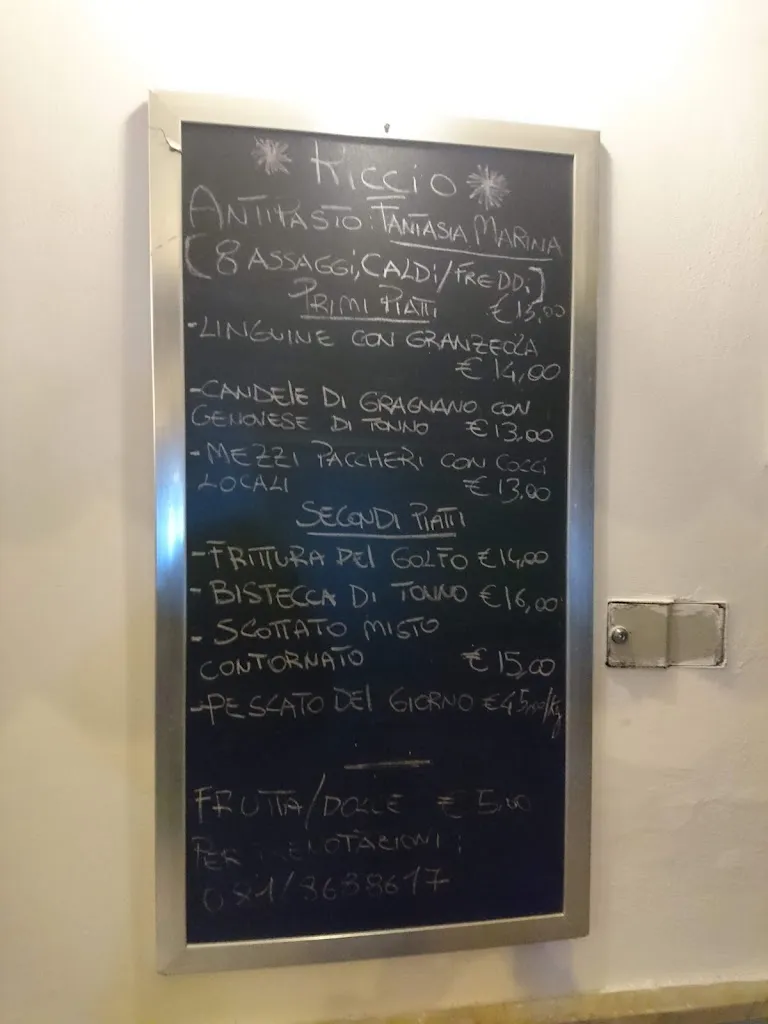 Riccio
ANTIPASTO: FANTASIA MARINA
(8 ASSAGGI, CALDI/FREDDI)
PRIMI PIATTI €15,00
-LINGUINE CON GRANZEOLA
€14,00
-CANDELE DI GRAGNANO CON
GENOVESE DI TONNO €13,00
-MEZZI PACCHERI CON COCCI
LOCALI €13,00
SECONDI PIATTI
-FRITTURA DEL GOLFO €14,00
-BISTECCA DI TONNO €16,00
-SCOTTATO MISTO
CONTORNATO €15,00
-PESCATO DEL GIORNO €45,00/kg
FRUTTA/DOLCE €5,00
PER PRENOTAZIONI:
081/8638617